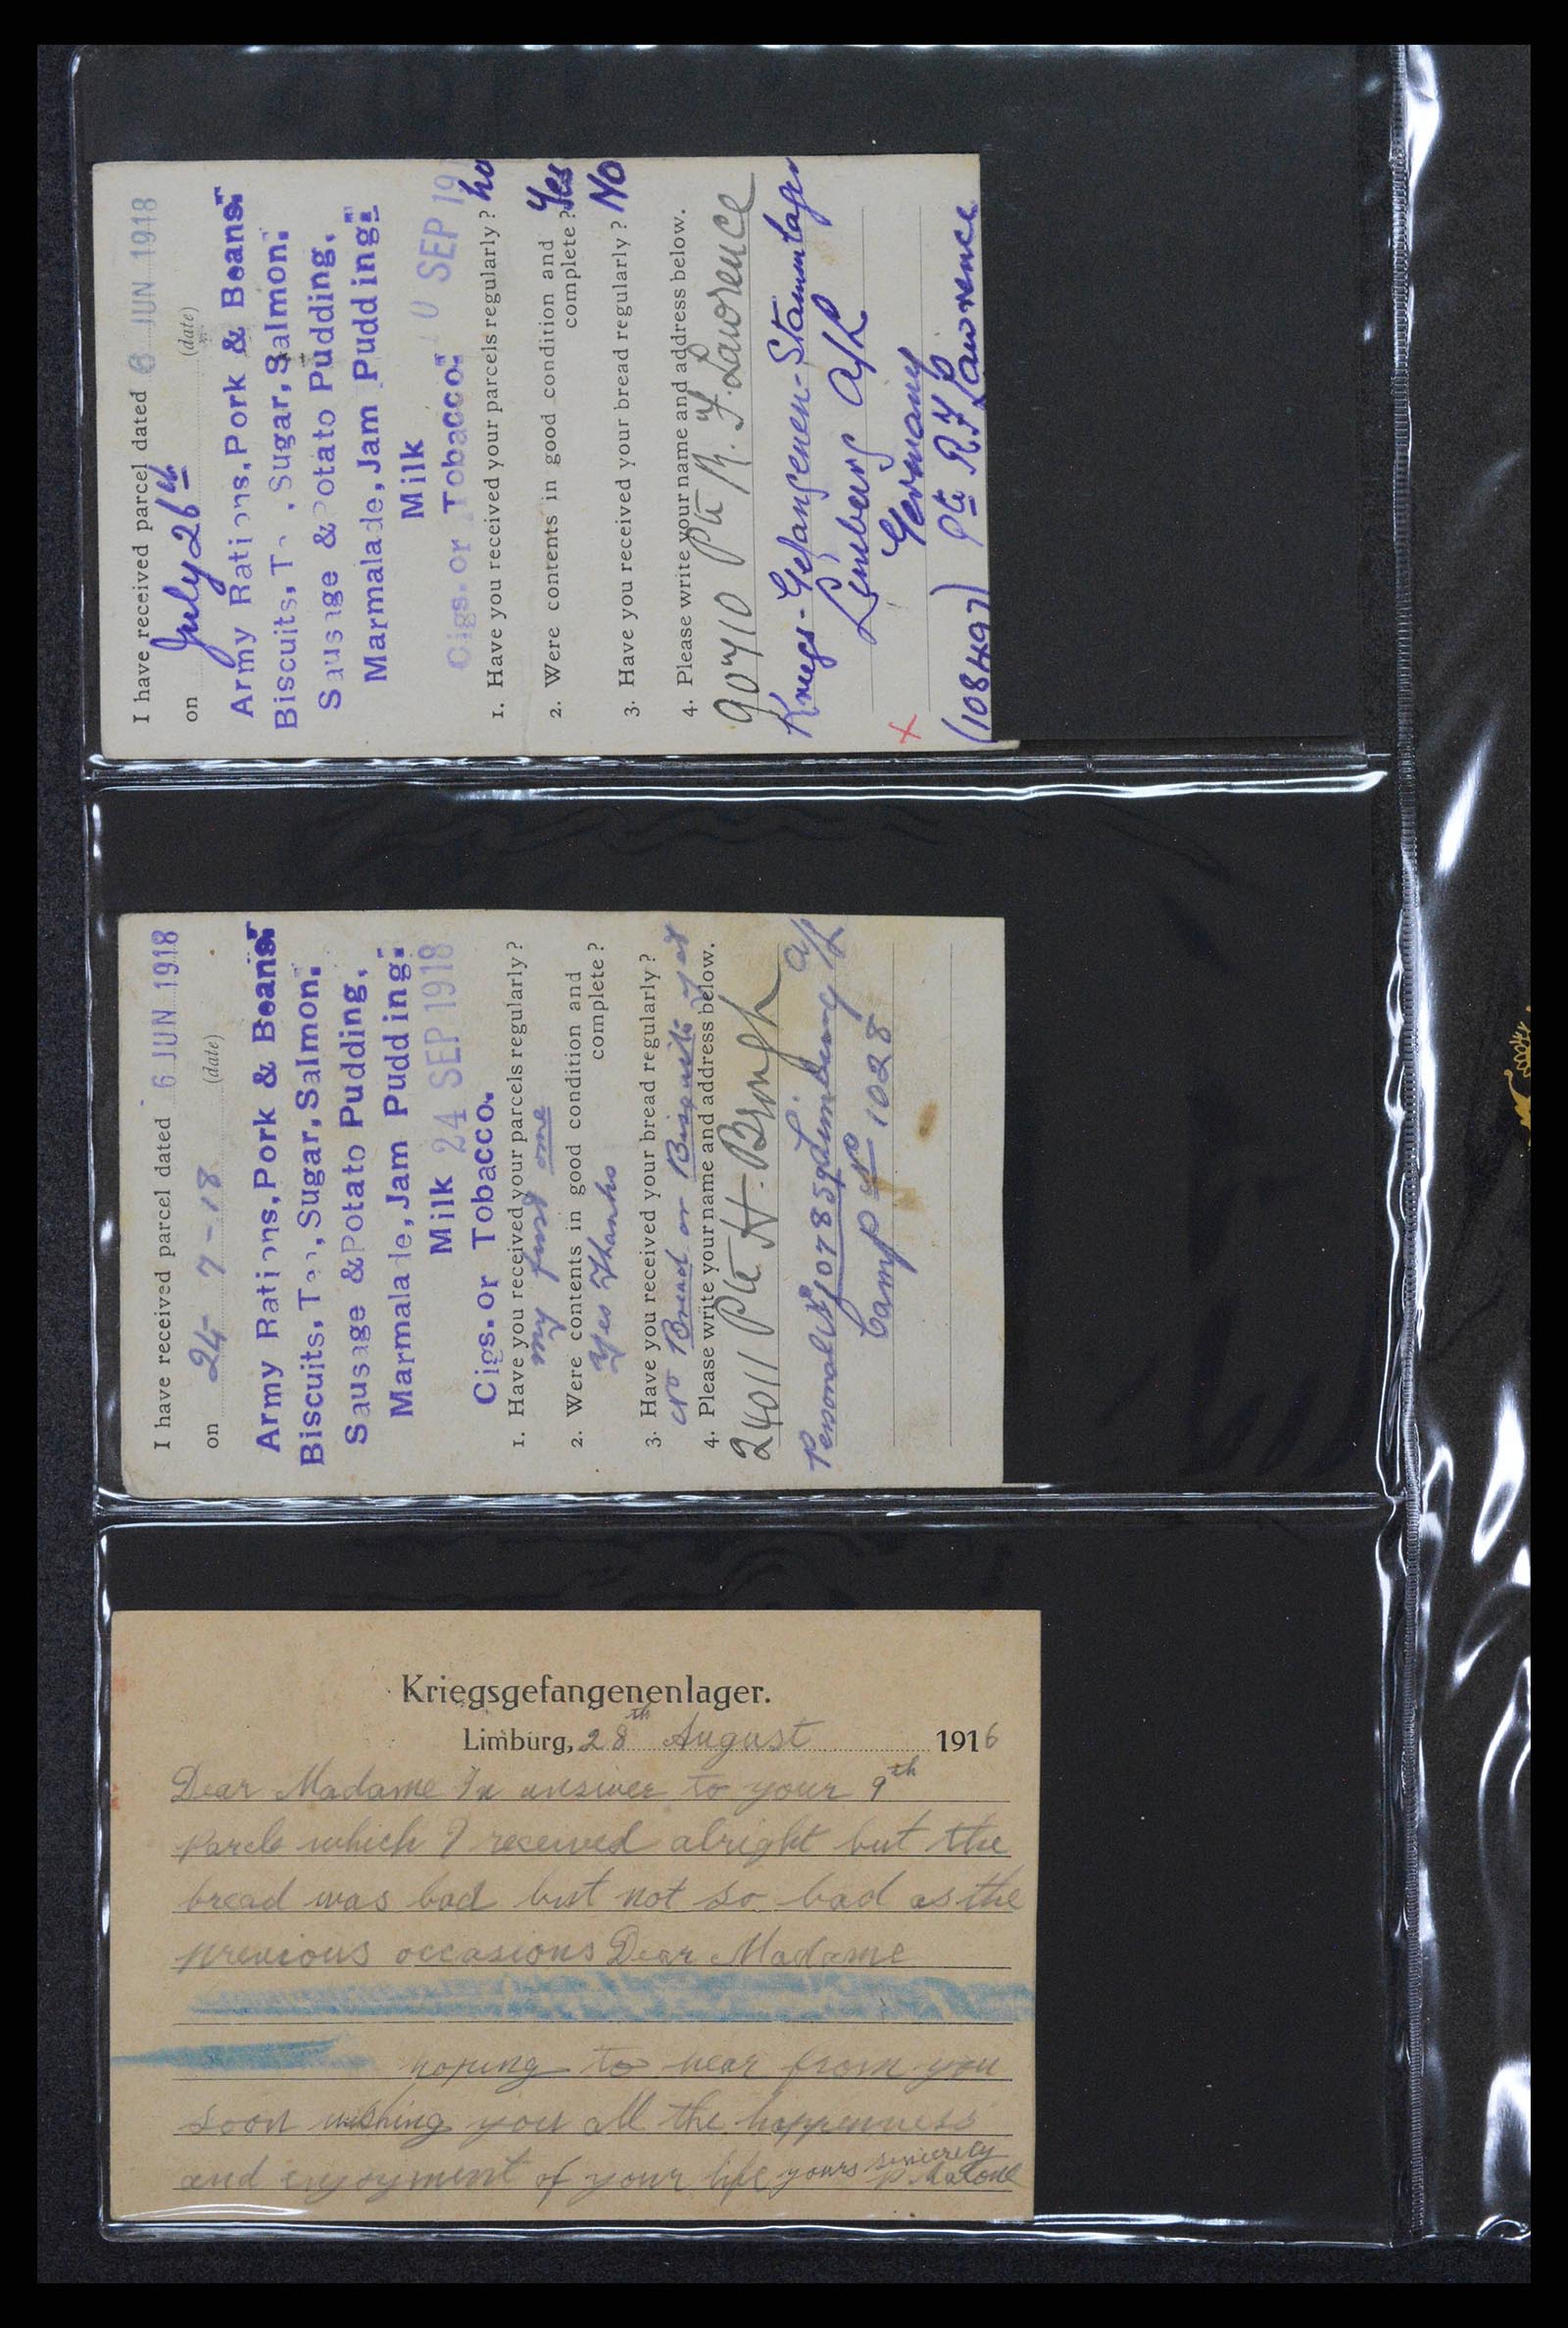 I have received parcel dated 6 JUN 1918
on July 26th
(date)
Army Rations, Pork & Beans.
Biscuits, T , Sugar, Salmon.
Sausage & Potato Pudding.
Marmalade, Jam Pudding.
Milk
0 SEP 19
Cigs. or Tobacco.
1. Have you received your parcels regularly? no
2. Were contents in good condition and
complete? Yes
3. Have you received your bread regularly? No
4. Please write your name and address below.
90710 Pte R. F. Lawrence
Kriegs-Gefangenen-Stammlager
Limburg a/L
Germany
(108497) Pte R.F. Lawrence
I have received parcel dated 6 JUN 1918
on 24-7-18
(date)
Army Rations, Pork & Beans.
Biscuits, Tea, Sugar, Salmon.
Sausage & Potato Pudding.
Marmalade, Jam Pudding.
Milk 24 SEP 1918
Cigs. or Tobacco.
1. Have you received your parcels regularly?
my first one
2. Were contents in good condition and
complete?
Yes Thanks
3. Have you received your bread regularly?
No Bread or Bisquits yet
4. Please write your name and address below.
24011 Pte H. Brough
Personal No Limburg a/L
Camp No 1028
Kriegsgefangenenlager.
Limburg, 28th August 1916
Dear Madame In answer to your 9th
Parcle which I received alright but the
bread was bad but not so bad as the
previous occasions Dear Madame
hoping to hear from you
soon wishing you all the happenness
and enjoyment of your life yours sincerely
P. Malone